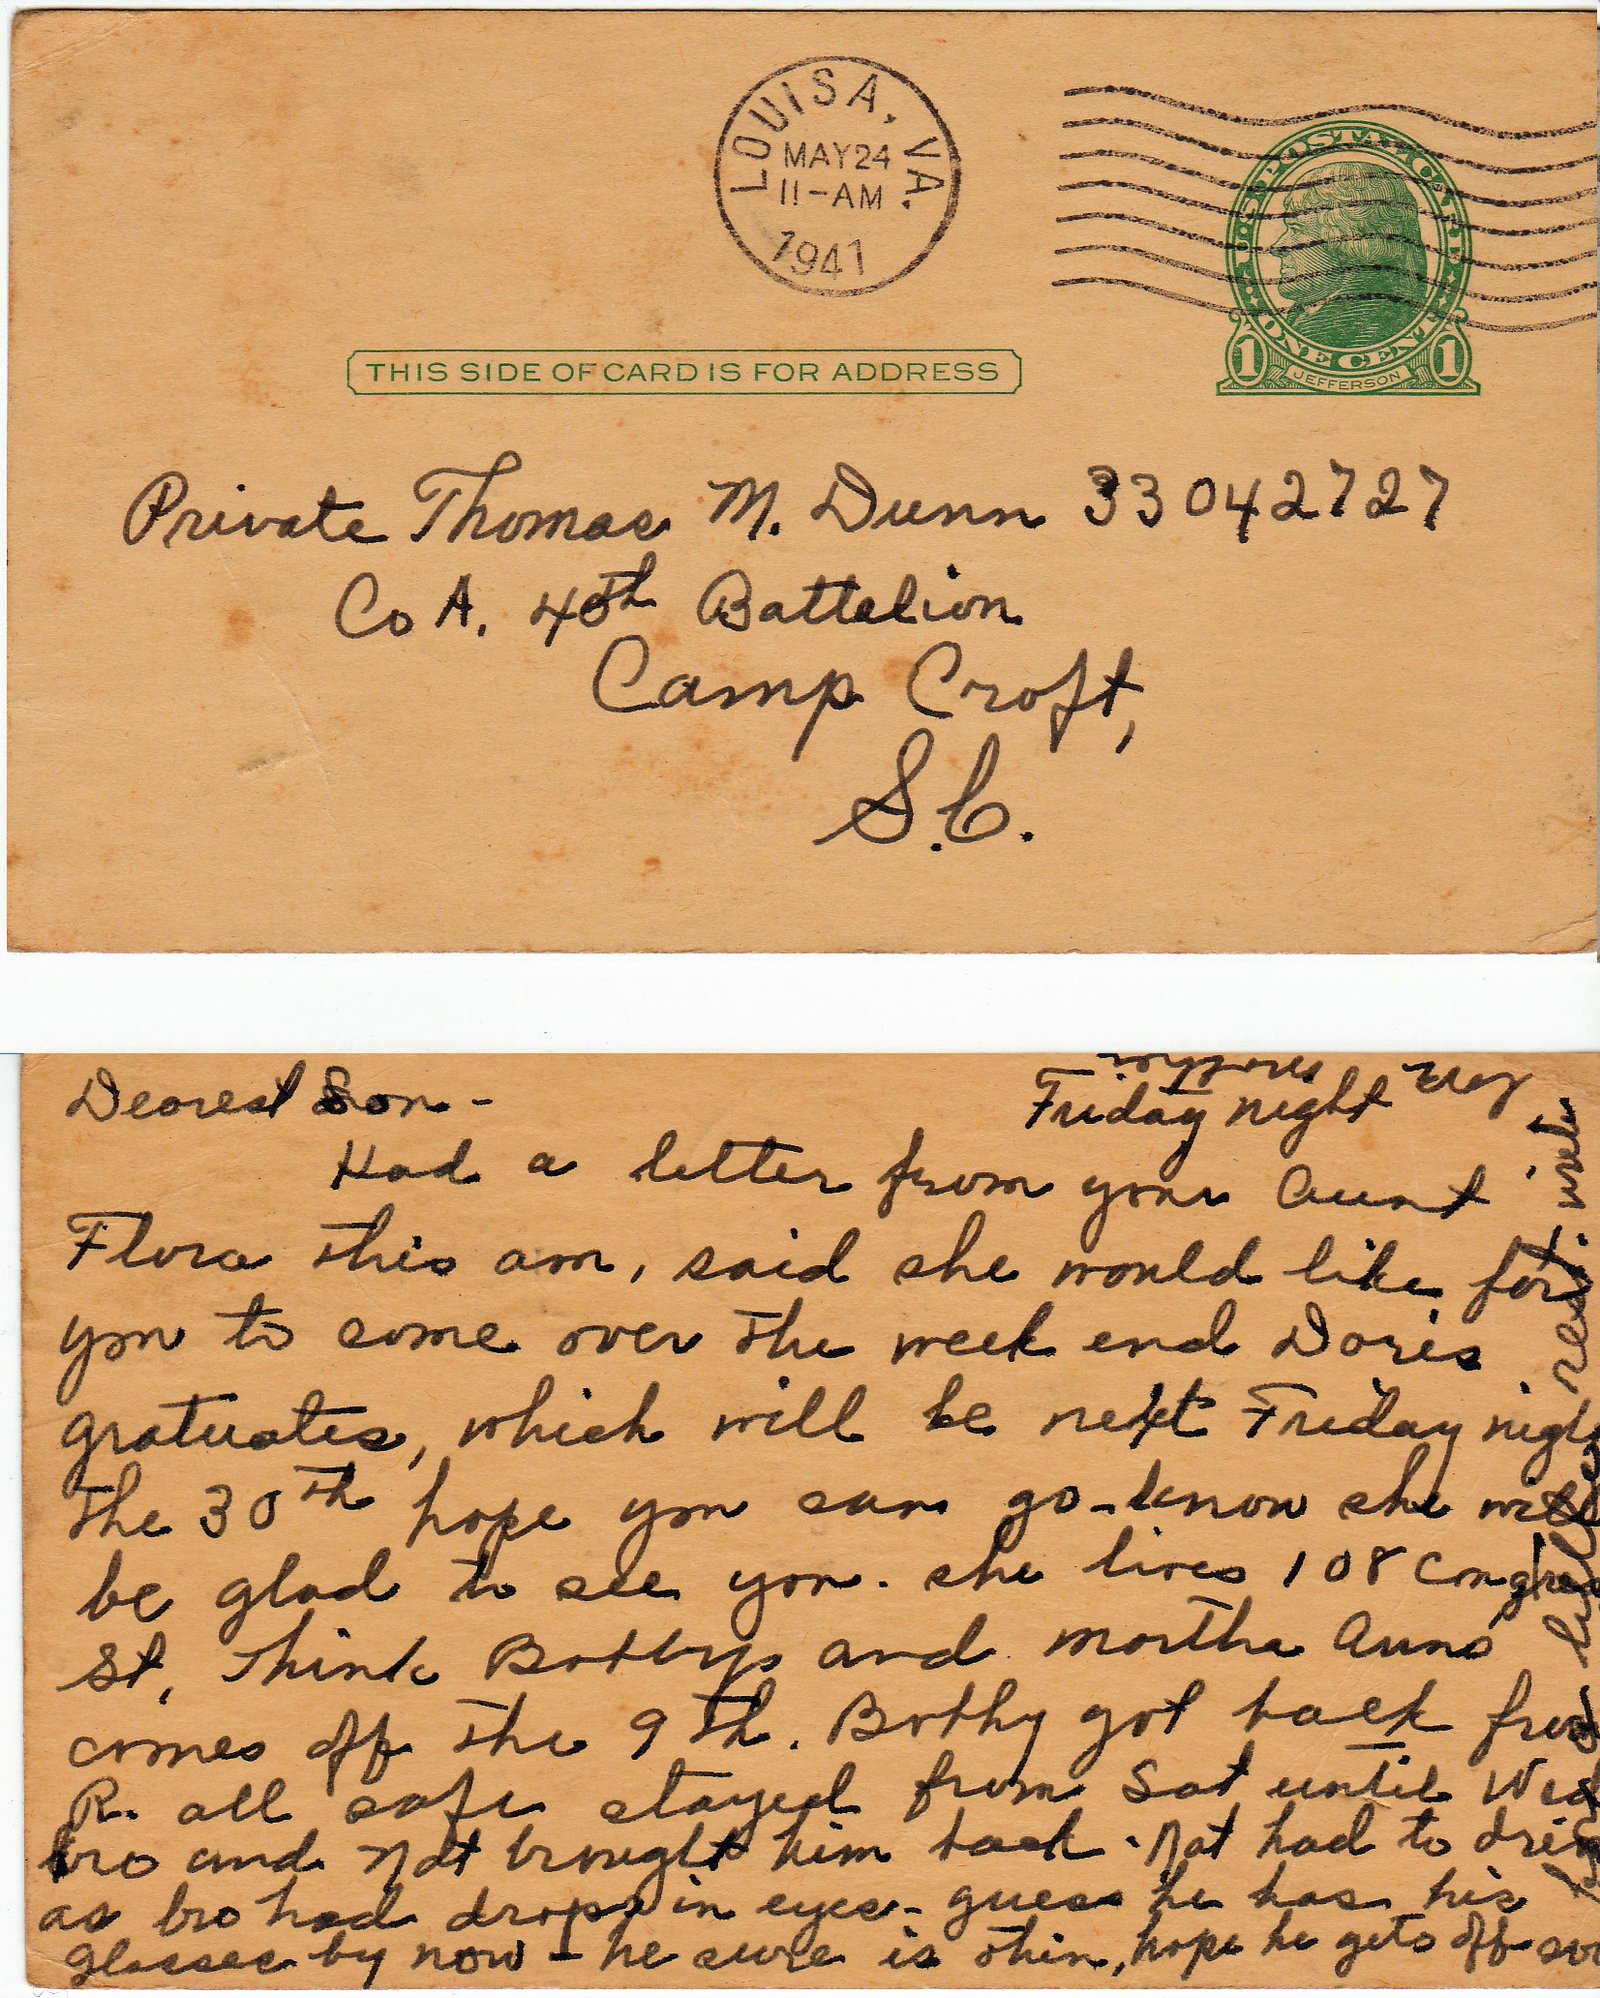 LOUISA, VA.
MAY 24
11-AM
1941
U.S. POSTAL CARD
ONE CENT
1 JEFFERSON 1
THIS SIDE OF CARD IS FOR ADDRESS
Private Thomas M. Dunn 33042727
Co A. 40th Battalion
Camp Croft,
S.C.
Dearest Son-
Friday night
Had a letter from your Aunt
Flora this am, said she would like for
you to come over the week end Doris
gratuates, which will be next Friday night
the 30th hope you can go - know she will
be glad to see you. she lives 108 Congress
St, think Bobbys and Martha Anns
comes off the 9th. Bobby got back from
R. all safe stayed from Sat until Wed
bro and Nat brought him back. Nat had to
as bro had drops in eyes - guess he has his
glasses by now - he sure is thin, hope he gets off